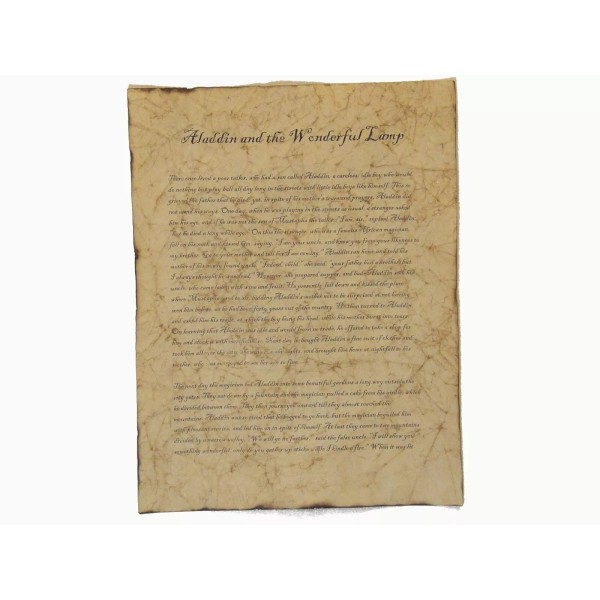 Aladdin and the Wonderful Lamp
There once lived a poor tailor, who had a son called Aladdin, a careless, idle boy who would
do nothing but play ball all day long in the streets with little idle boys like himself. This so
grieved the father that he died; yet, in spite of his mother's tears and prayers, Aladdin did
not mend his ways. One day, when he was playing in the streets as usual, a stranger asked
him his age, and if he was not the son of Mustapha the tailor. "I am, sir," replied Aladdin;
"but he died a long while ago." On this the stranger, who was a famous African magician,
fell on his neck and kissed him, saying: "I am your uncle, and knew you from your likeness to
my brother. Go to your mother and tell her I am coming." Aladdin ran home and told his
mother of his newly found uncle. "Indeed, child," she said, "your father had a brother, but
I always thought he was dead." However, she prepared supper, and bade Aladdin seek his
uncle, who came laden with wine and fruit. He presently fell down and kissed the place
where Mustapha used to sit, bidding Aladdin's mother not to be surprised at not having
seen him before, as he had been forty years out of the country. He then turned to Aladdin,
and asked him his trade, at which the boy hung his head, while his mother burst into tears.
On learning that Aladdin was idle and would learn no trade, he offered to take a shop for
him and stock it with merchandise. Next day he bought Aladdin a fine suit of clothes and
took him all over the city, showing him the sights, and brought him home at nightfall to his
mother, who was overjoyed to see her son so fine.
The next day the magician led Aladdin into some beautiful gardens a long way outside the
city gates. They sat down by a fountain, and the magician pulled a cake from his girdle, which
he divided between them. They then journeyed onward till they almost reached the
mountains. Aladdin was so tired that he begged to go back, but the magician beguiled him
with pleasant stories, and led him on in spite of himself. At last they came to two mountains
divided by a narrow valley. "We will go no farther," said the false uncle. "I will show you
something wonderful; only do you gather up sticks while I kindle a fire." When it was lit